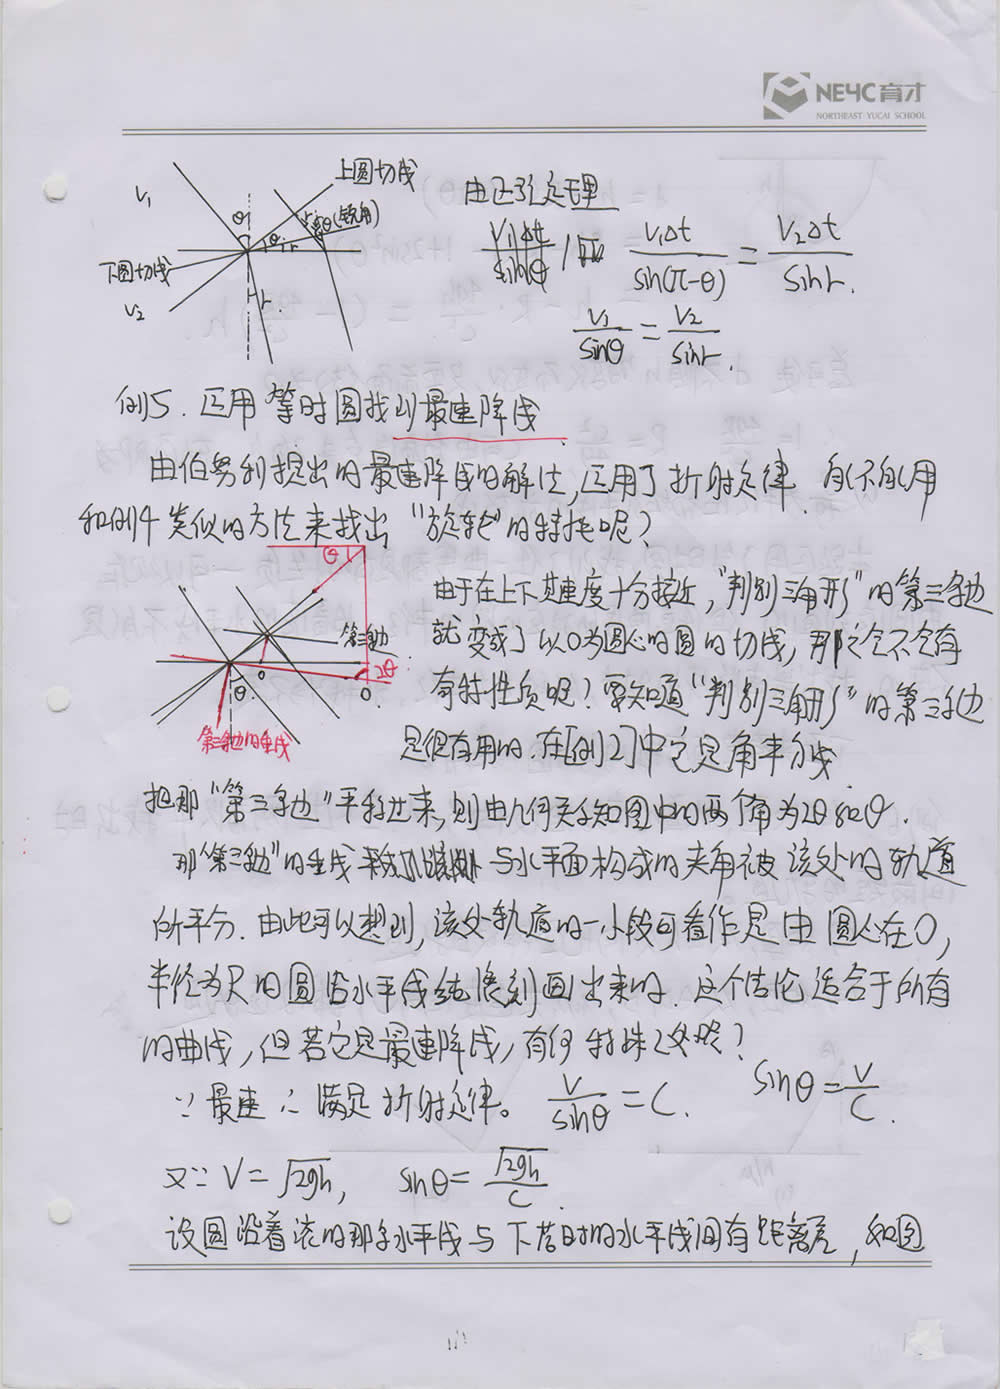 NEYC育才
NORTHEAST YUCAI SCHOOL
上圆切线
V₁
θ
θ(锐角)
下圆切线
V₂
r
由正弦定理
V₁Δt/sin(π-θ) = V₂Δt/sin r.
V₁/sinθ = V₂/sin r.
例5. 运用等时圆找到最速降线.
由伯努利提出的最速降线的解法,运用了折射定律. 能不能用
和例4类似的方法来找出"旋轮"的特征呢?
θ
第三边
2θ
θ
O
第三边的垂线
由于在上下其速度十分接近,"判别三角形"的第三边
就变成了以O为圆心的圆的切线, 那它会不会有
有特性质呢? 要知道"判别三角形"的第三边
是很有用的. 在[例2]中它是角平分线
把那"第三边"平移过来,则由几何关系知图中的两个角为2θ和θ.
那"第三边"的垂线 与水平面构成的夹角被该处的轨道
所平分. 由此可以想到, 该处轨道的一小段可看作是由圆心在O,
半径为R的圆沿水平线纯滚刻画出来的. 这个结论适合于所有
的曲线, 但若它是最速降线, 有何特殊之处呢?
∵最速 ∴满足折射定律。 V/sinθ = C. sinθ = V/C.
又∵ V = √2gh, sinθ = √2gh/C.
设圆沿着滚的那条水平线与下落时的水平线间有距离差, 如图